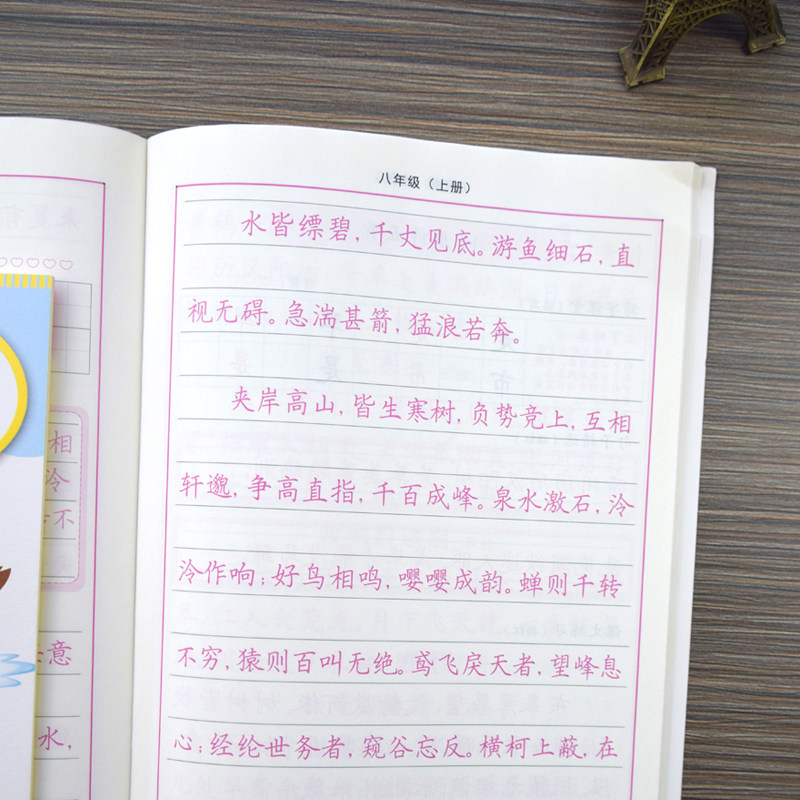 相
泠
不
意
水，
八年级（上册）
水皆缥碧，千丈见底。游鱼细石，直
视无碍。急湍甚箭，猛浪若奔。
夹岸高山，皆生寒树，负势竞上，互相
轩邈，争高直指，千百成峰。泉水激石，泠
泠作响；好鸟相鸣，嘤嘤成韵。蝉则千转
不穷，猿则百叫无绝。鸢飞戾天者，望峰息
心；经纶世务者，窥谷忘反。横柯上蔽，在